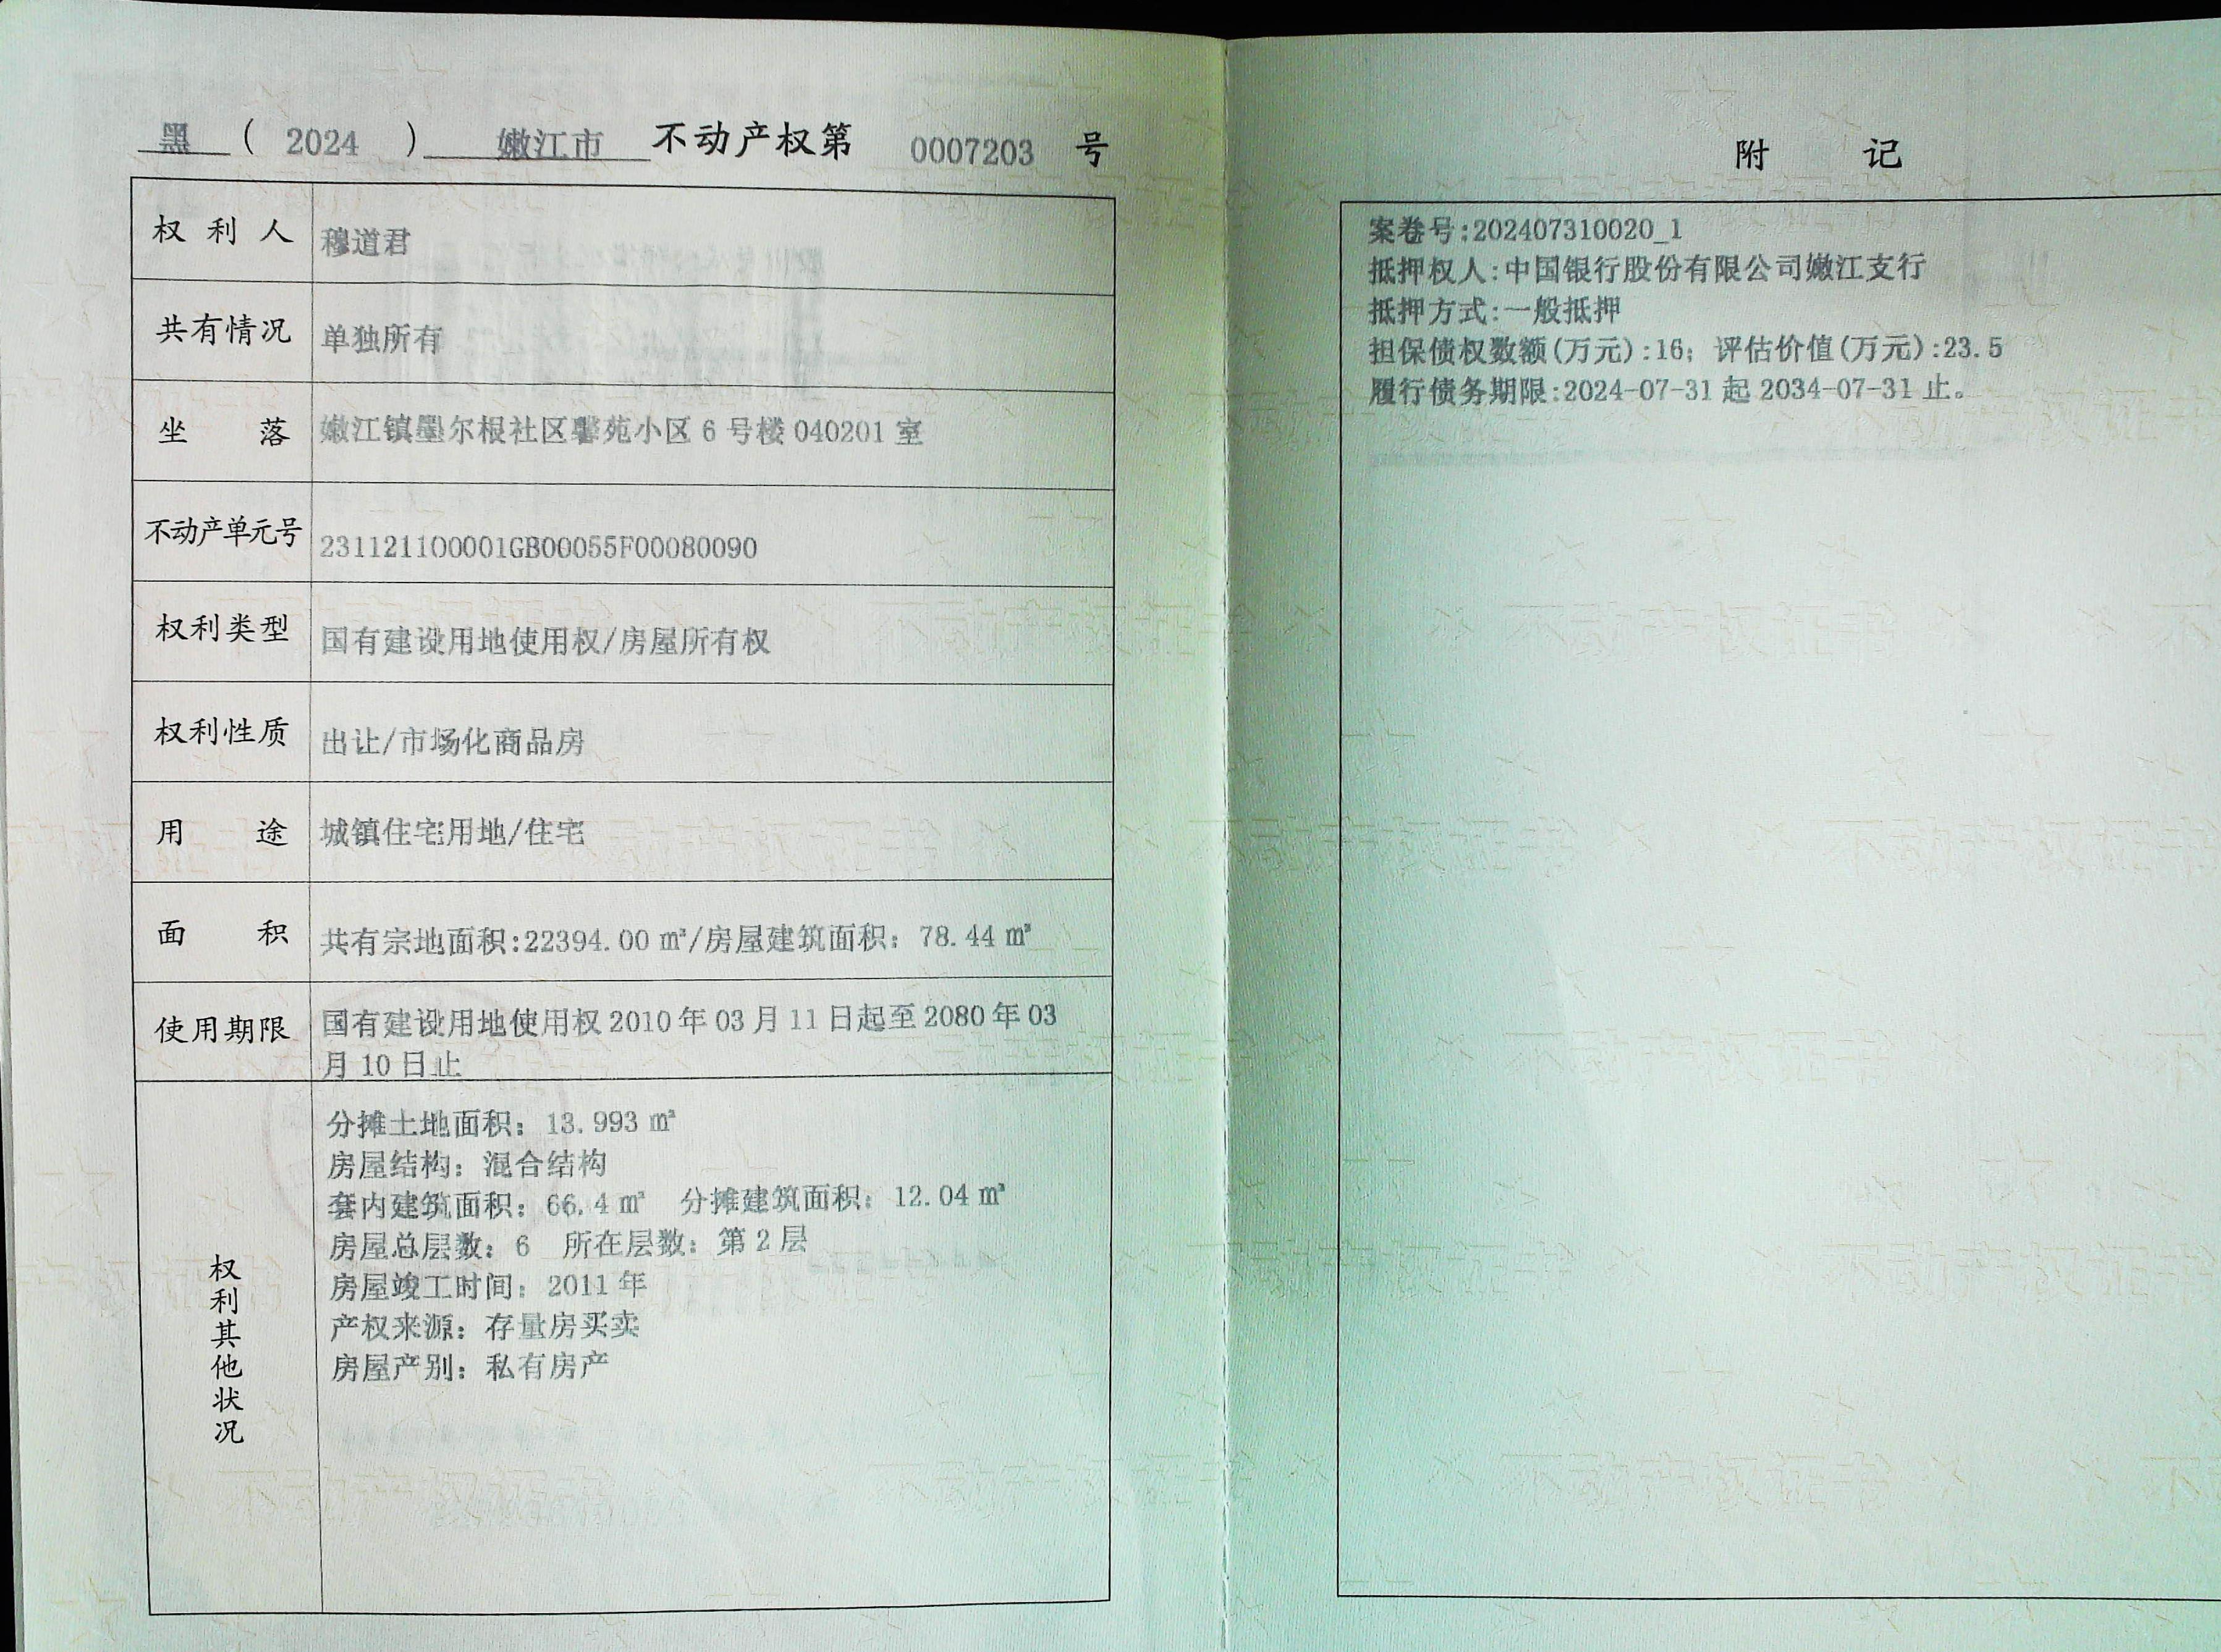 黑（2024）嫩江市不动产权第0007203号
权利人 穆道君
共有情况 单独所有
坐落 嫩江镇墨尔根社区馨苑小区6号楼040201室
不动产单元号 231121100001GB00055F00080090
权利类型 国有建设用地使用权/房屋所有权
权利性质 出让/市场化商品房
用途 城镇住宅用地/住宅
面积 共有宗地面积:22394.00㎡/房屋建筑面积：78.44㎡
使用期限 国有建设用地使用权2010年03月11日起至2080年03
月10日止
权利其他状况
分摊土地面积：13.993㎡
房屋结构：混合结构
套内建筑面积：66.4㎡ 分摊建筑面积：12.04㎡
房屋总层数：6 所在层数：第2层
房屋竣工时间：2011年
产权来源：存量房买卖
房屋产别：私有房产
附记
案卷号:202407310020_1
抵押权人:中国银行股份有限公司嫩江支行
抵押方式:一般抵押
担保债权数额(万元):16；评估价值(万元):23.5
履行债务期限:2024-07-31起2034-07-31止。